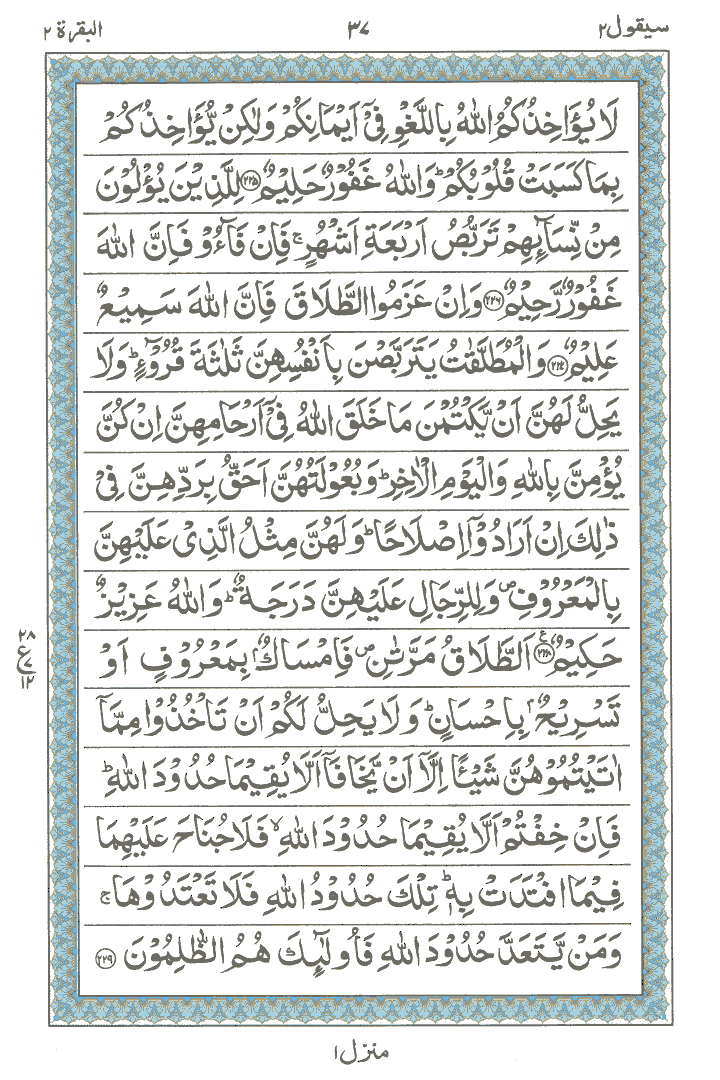 سيقول ٢ ٣٧ البقرة ٢
لَا يُؤَاخِذُكُمُ اللّٰهُ بِاللَّغْوِ فِىْٓ اَيْمَانِكُمْ وَلٰكِنْ يُّؤَاخِذُكُمْ
بِمَا كَسَبَتْ قُلُوْبُكُمْ ؕ وَاللّٰهُ غَفُوْرٌ حَلِيْمٌ ﴿٢٢٥﴾ لِلَّذِيْنَ يُؤْلُوْنَ
مِنْ نِّسَآئِهِمْ تَرَبُّصُ اَرْبَعَةِ اَشْهُرٍ ۚ فَاِنْ فَآءُوْ فَاِنَّ اللّٰهَ
غَفُوْرٌ رَّحِيْمٌ ﴿٢٢٦﴾ وَاِنْ عَزَمُوا الطَّلَاقَ فَاِنَّ اللّٰهَ سَمِيْعٌ
عَلِيْمٌ ﴿٢٢٧﴾ وَالْمُطَلَّقٰتُ يَتَرَبَّصْنَ بِاَنْفُسِهِنَّ ثَلٰثَةَ قُرُوْٓءٍ ؕ وَلَا
يَحِلُّ لَهُنَّ اَنْ يَّكْتُمْنَ مَا خَلَقَ اللّٰهُ فِىْٓ اَرْحَامِهِنَّ اِنْ كُنَّ
يُؤْمِنَّ بِاللّٰهِ وَالْيَوْمِ الْاٰخِرِ ؕ وَبُعُوْلَتُهُنَّ اَحَقُّ بِرَدِّهِنَّ فِىْ
ذٰلِكَ اِنْ اَرَادُوْٓا اِصْلَاحًا ؕ وَلَهُنَّ مِثْلُ الَّذِىْ عَلَيْهِنَّ
بِالْمَعْرُوْفِ ۪ وَلِلرِّجَالِ عَلَيْهِنَّ دَرَجَةٌ ؕ وَاللّٰهُ عَزِيْزٌ
حَكِيْمٌ ﴿٢٢٨﴾ اَلطَّلَاقُ مَرَّتٰنِ ۪ فَاِمْسَاكٌۢ بِمَعْرُوْفٍ اَوْ
تَسْرِيْحٌۢ بِاِحْسَانٍ ؕ وَلَا يَحِلُّ لَكُمْ اَنْ تَاْخُذُوْا مِمَّآ
اٰتَيْتُمُوْهُنَّ شَيْـًٔا اِلَّآ اَنْ يَّخَافَآ اَلَّا يُقِيْمَا حُدُوْدَ اللّٰهِ ؕ
فَاِنْ خِفْتُمْ اَلَّا يُقِيْمَا حُدُوْدَ اللّٰهِ ۙ فَلَا جُنَاحَ عَلَيْهِمَا
فِيْمَا افْتَدَتْ بِهٖ ؕ تِلْكَ حُدُوْدُ اللّٰهِ فَلَا تَعْتَدُوْهَا ۚ
وَمَنْ يَّتَعَدَّ حُدُوْدَ اللّٰهِ فَاُولٰٓئِكَ هُمُ الظّٰلِمُوْنَ ﴿٢٢٩﴾
٢٨
ع ٧
١٢
منزل ١